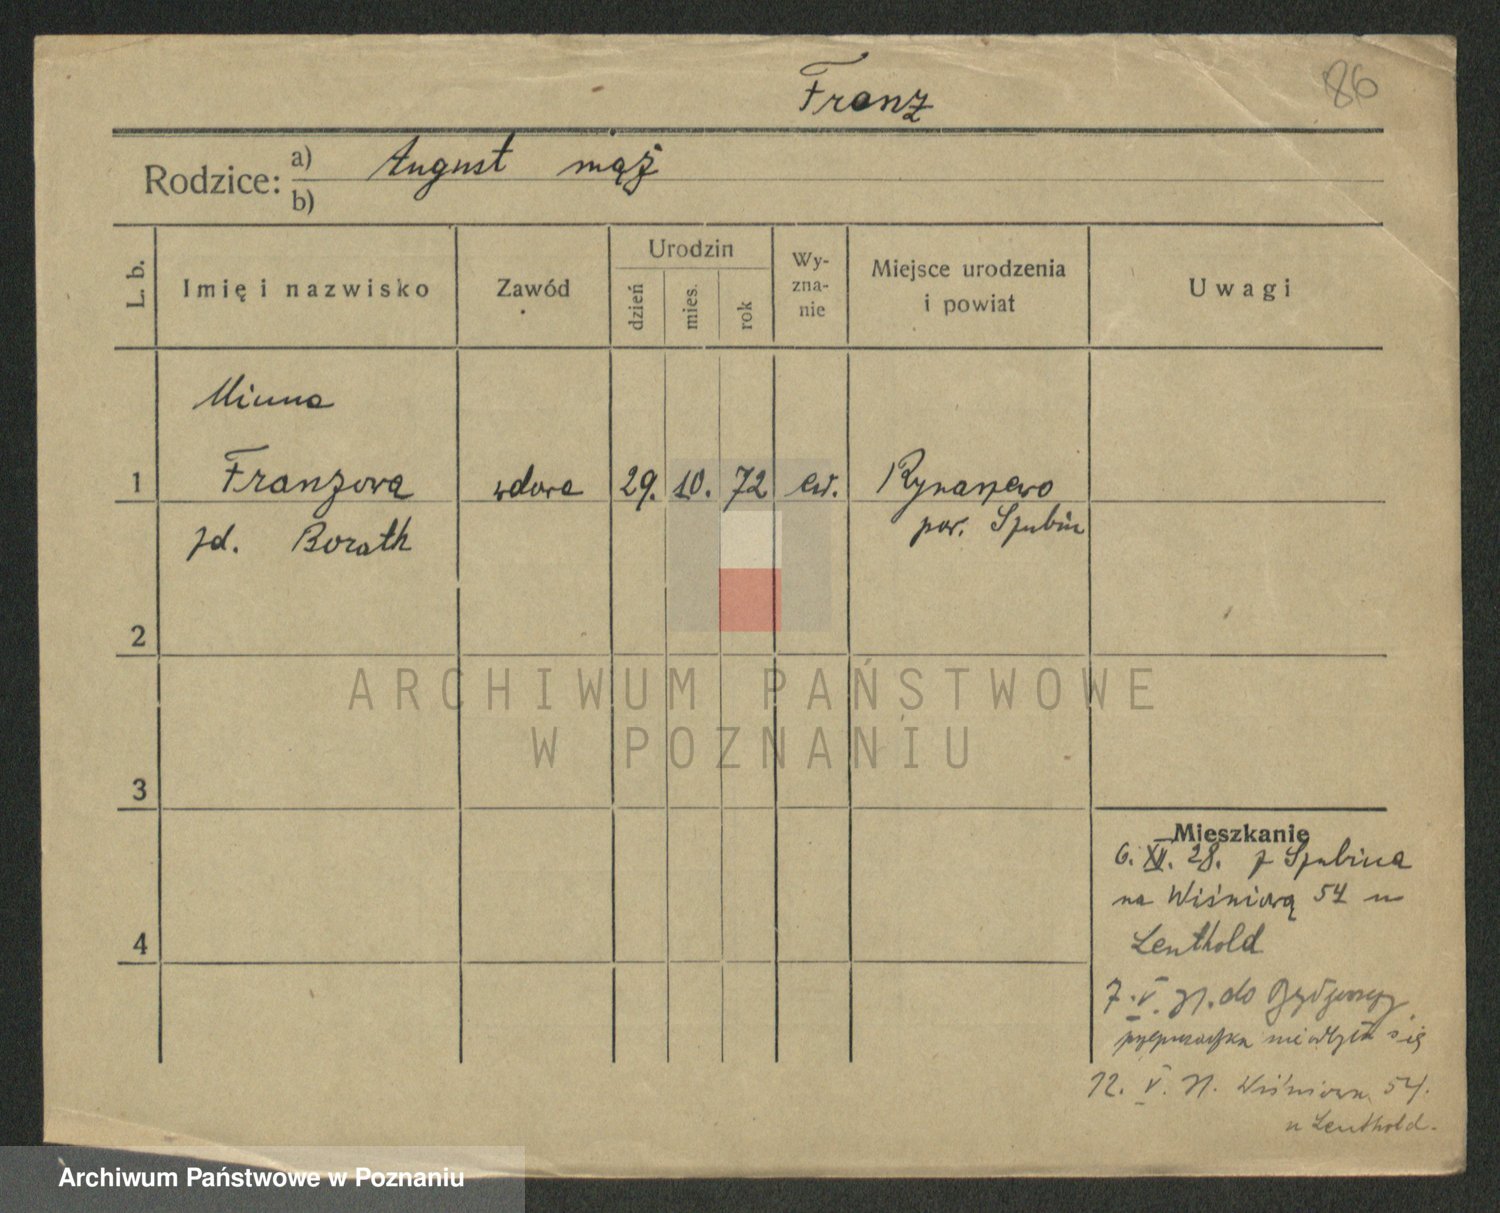 Franz
86
Rodzice: a) August mąż
b)
L. b.
Imię i nazwisko
Zawód
Urodzin
dzień
mies.
rok
Wy-
zna-
nie
Miejsce urodzenia
i powiat
Uwagi
Minna
1 Franzowa wdowa 29. 10. 72 ew. Rynarzewo
zd. Borath pow. Szubin
2
3
4
Mieszkanie
6. XII. 28. z Szubina
na Wiśniową 54 u
Leuthold
7. V. 31. do Bydgoszczy
przeprowadzka nie odbyła się
12. V. 31. Wiśniowa 54.
u Leuthold.
ARCHIWUM PAŃSTWOWE
W POZNANIU
Archiwum Państwowe w Poznaniu